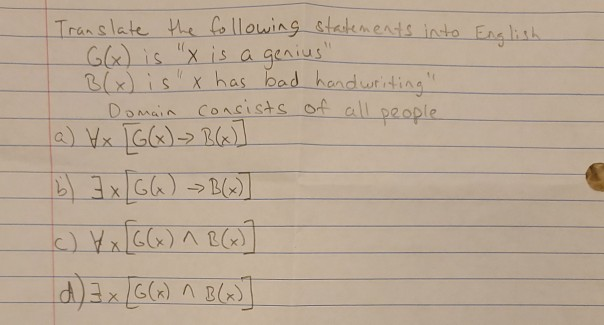 Translate the following statements into English
G(x) is "x is a genius"
B(x) is "x has bad handwriting"
Domain consists of all people
a) ∀x [G(x) → B(x)]
b) ∃x [G(x) → B(x)]
c) ∀x [G(x) ∧ B(x)]
d) ∃x [G(x) ∧ B(x)]